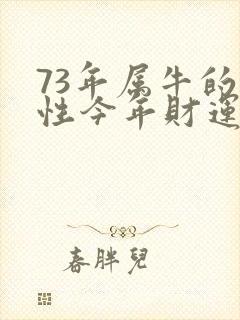 73年属牛的
性今年財運
春胖兒